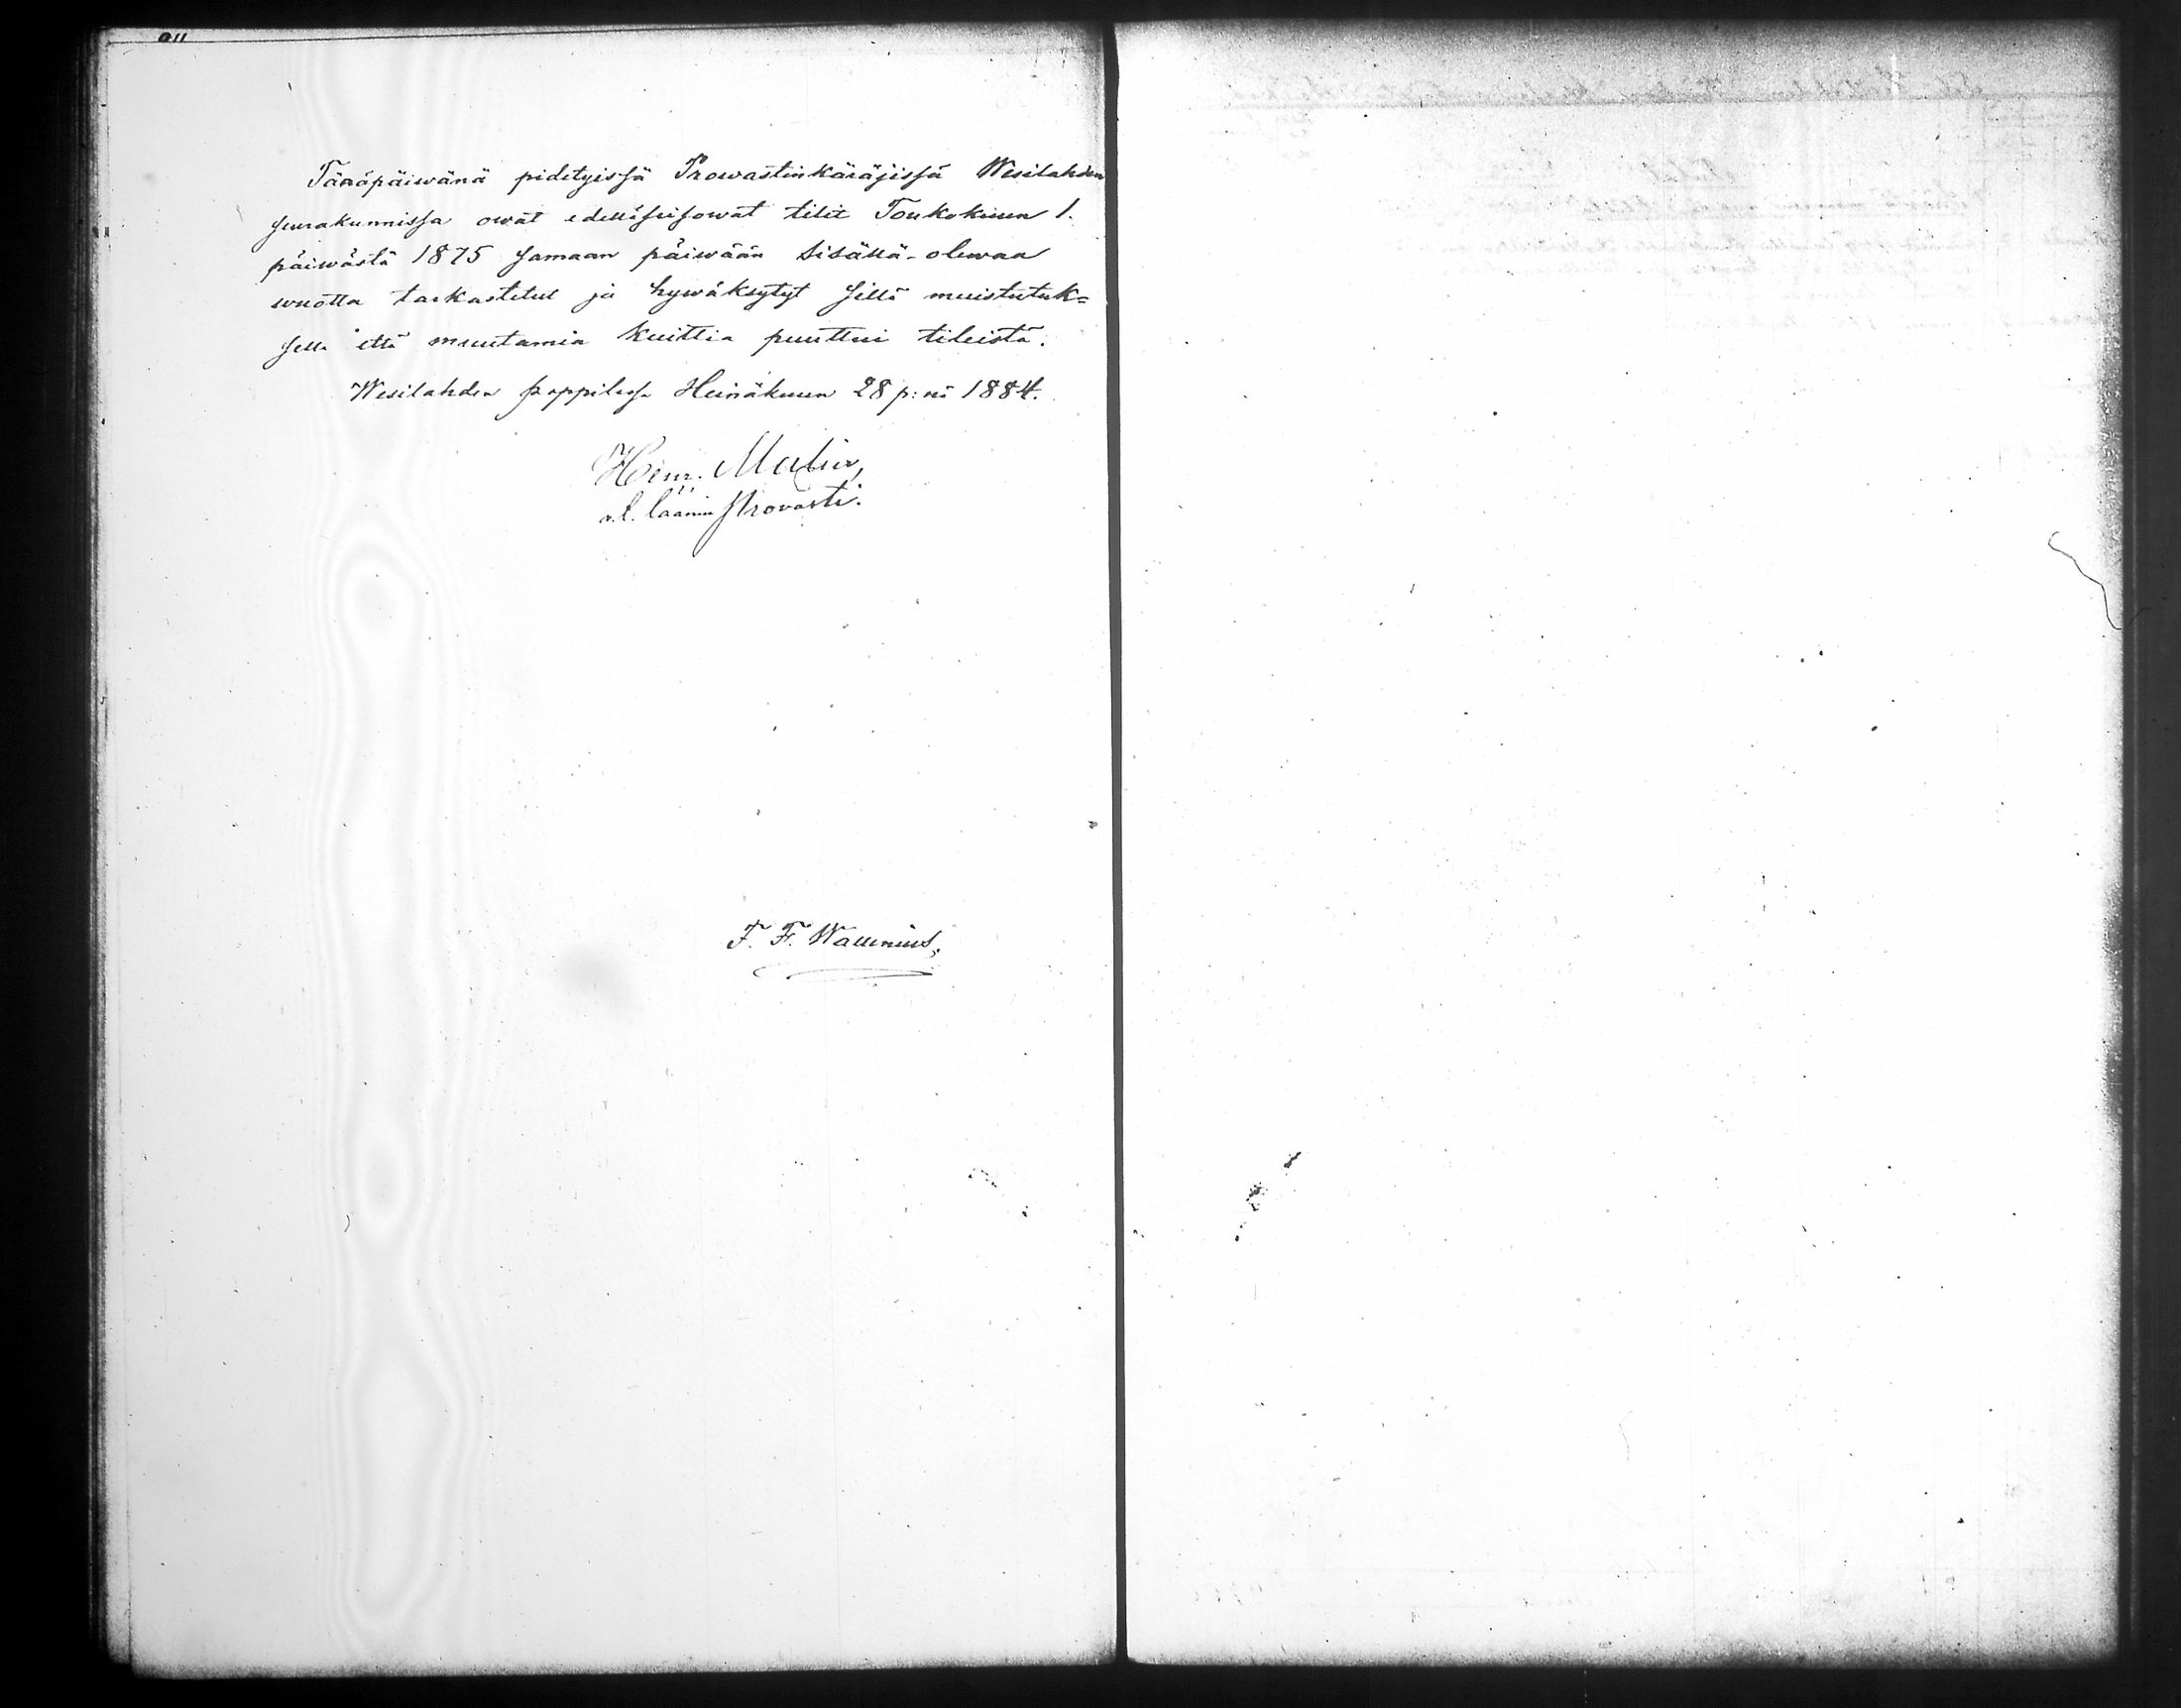 Tänäpäiwänä pidetyissä Prowastinkäräjissä Wesilahden
seurakunnissa owat edelläseisowat tilit Toukokuun 1.
päiwästä 1875 samaan päiwään sisällä-olewaa
wuotta tarkastetut ja hywäksytyt sillä muistutuk=
sella että muutamia kuittia puuttui tileistä.
Wesilahden pappilassa Heinäkuun 28 p:nä 1884.
Henr. Malin,
v.t. läänin Provasti.
F. F. Wallenius.